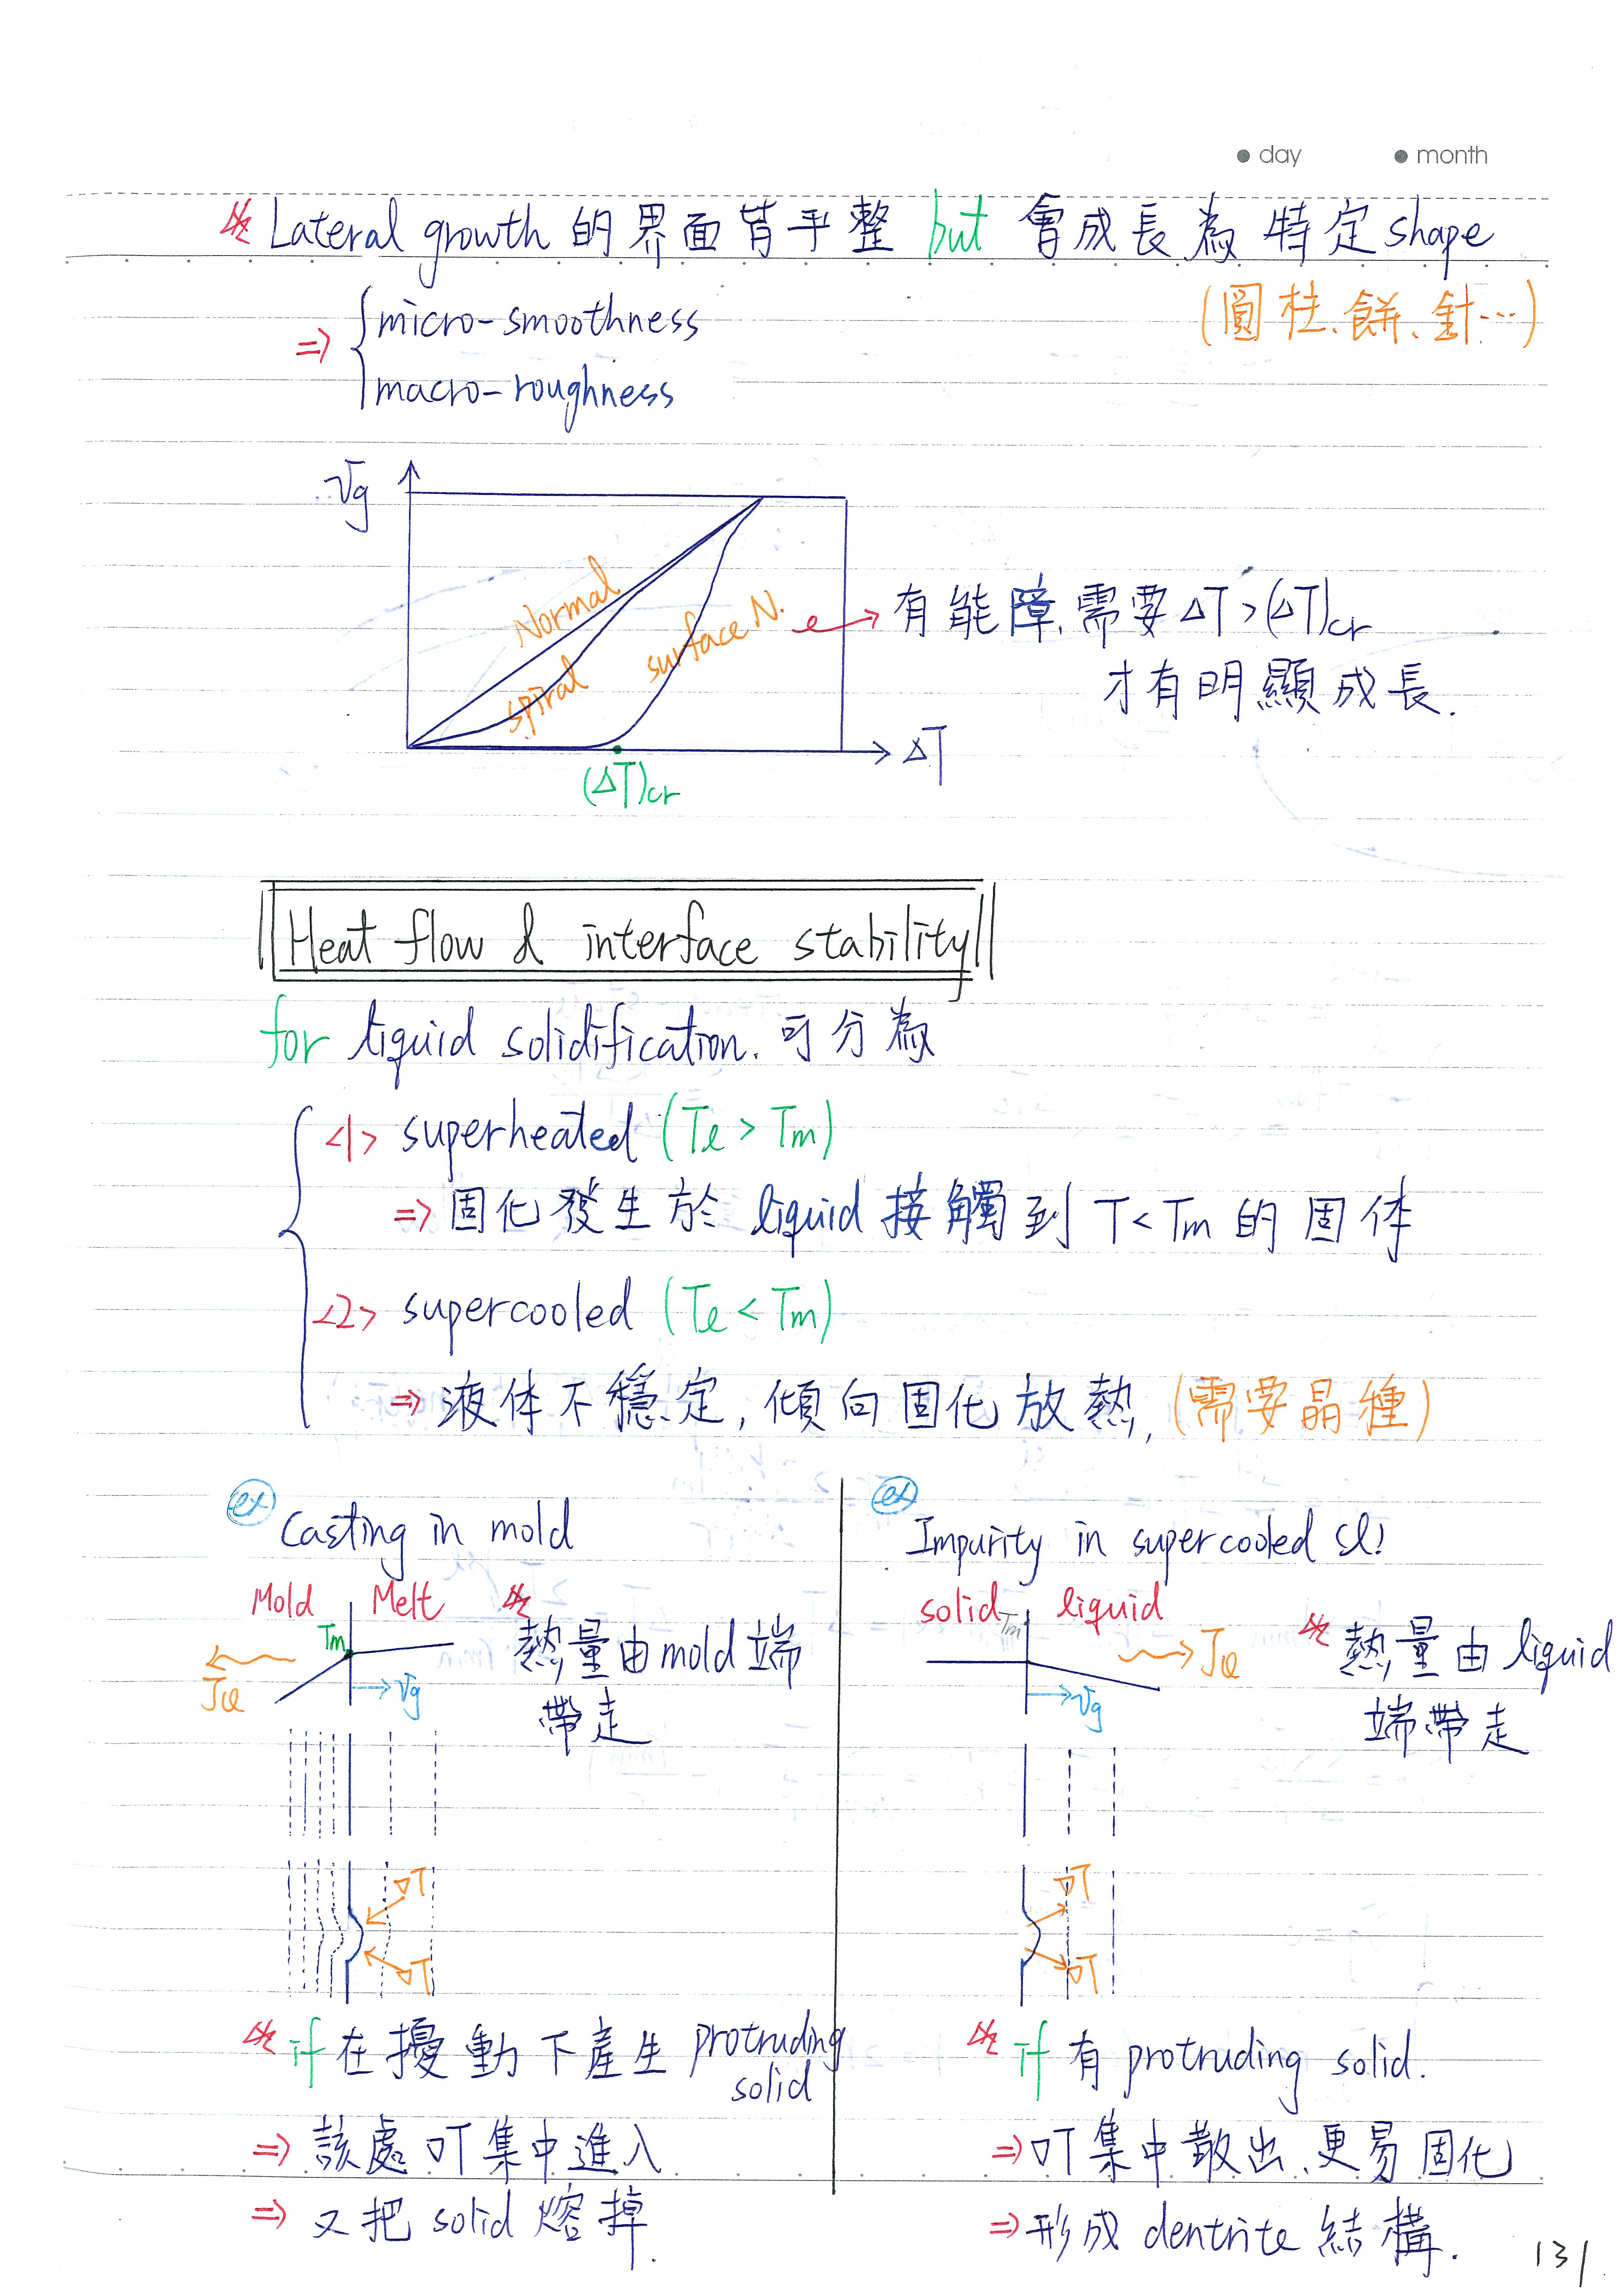 ● day ● month
※ Lateral growth 的界面皆平整 but 會成長為特定 shape
(圓柱、餅、針…)
⇒ { micro-smoothness
macro-roughness
Vg
Normal
spiral
surface N.
→ 有能障,需要 ΔT > (ΔT)cr
才有明顯成長.
ΔT
(ΔT)cr
Heat flow & interface stability
for liquid solidification. 可分為
<1> superheated (Tl > Tm)
⇒ 固化發生於 liquid 接觸到 T < Tm 的固体
<2> supercooled (Tl < Tm)
⇒ 液体不穩定, 傾向固化放熱, (需要晶種)
ex Casting in mold
Mold Melt
Tm
JQ
Vg
※ 熱量由 mold 端
帶走
∇T
∇T
※ if 在擾動下產生 protruding
solid
⇒ 該處 ∇T 集中進入
⇒ 又把 solid 熔掉.
ex Impurity in supercooled sl!
solid Tm liquid
JQ
Vg
※ 熱量由 liquid
端帶走
∇T
∇T
※ if 有 protruding solid.
⇒ ∇T 集中散出、更易固化
⇒ 形成 dentrite 結構.
131